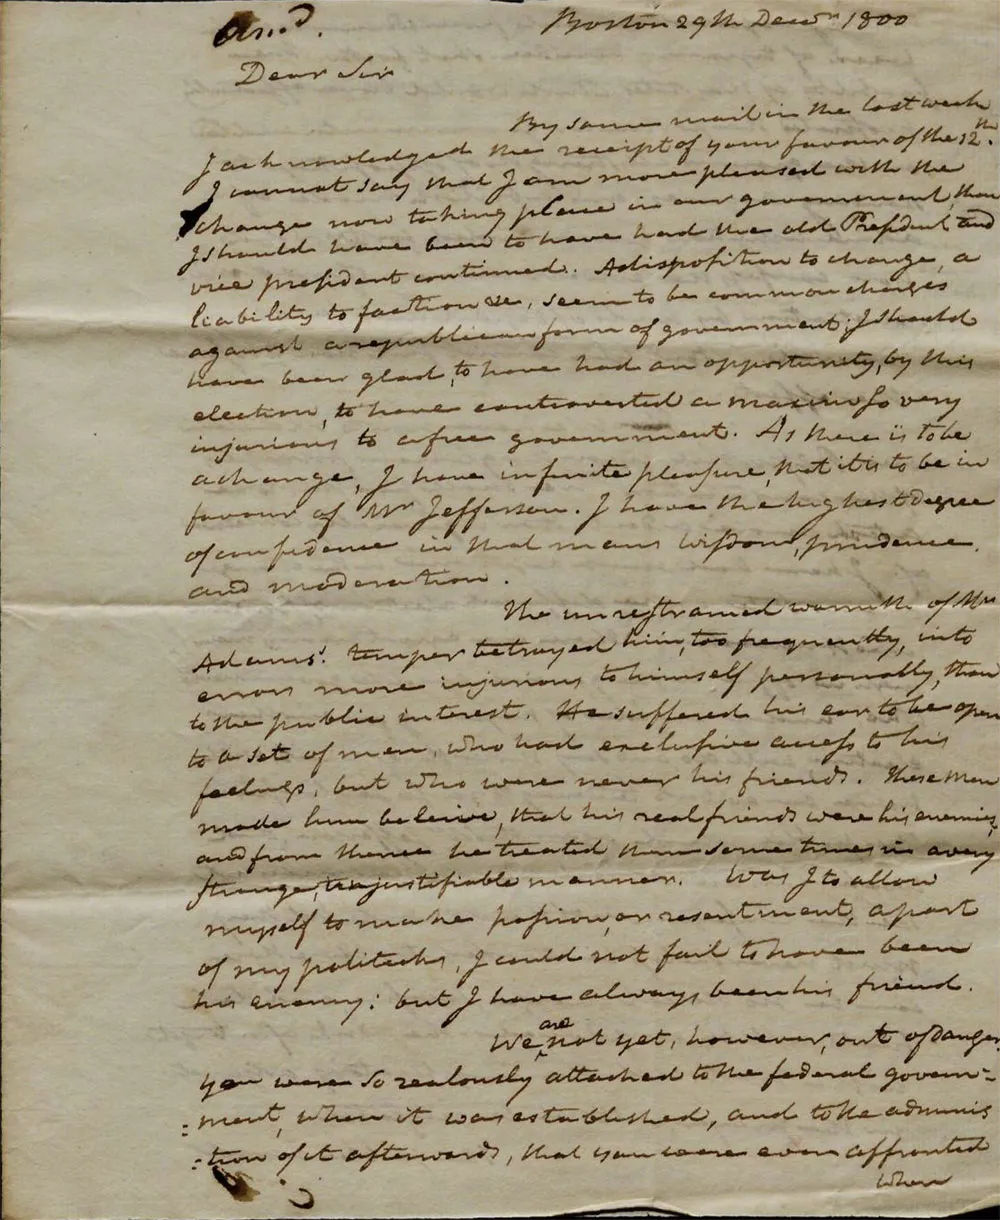 Ansd.
Boston 29th Decr. 1800
Dear Sir
By some mail in the last week
I acknowledged the receipt of your favour of the 12th.
I cannot say that I am more pleased with the
change now taking place in our government than
I should have been to have had the old President and
vice president continued. A disposition to change, a
liability to faction &c, seem to be common charges
against a republican form of government; I should
have been glad, to have had an opportunity, by this
election, to have controverted a maxim so very
injurious to a free government. As there is to be
a change, I have infinite pleasure, that it is to be in
favour of Mr Jefferson. I have the highest degree
of confidence in that mans wisdom, prudence,
and moderation.
The unrestrained warmth of Mr
Adams's temper betrayed him, too frequently, into
errors more injurious to himself personally, than
to the public interest. He suffered his ear to be open
to a set of men, who had exclusive access to his
feelings, but who were never his friends. These men
made him beleive, that his real friends were his enemies,
and from thence he treated them some times in a very
strange, unjustifiable manner. Was I to allow
myself to make passion, or resentment, a part
of my politicks, I could not fail to have been
his enemy: but I have always been his friend.
We are not yet, however, out of danger.
you were so zealously attached to the federal govern=
=ment, when it was established, and to the adminis
=tion of it afterwards, that you were even affronted
when